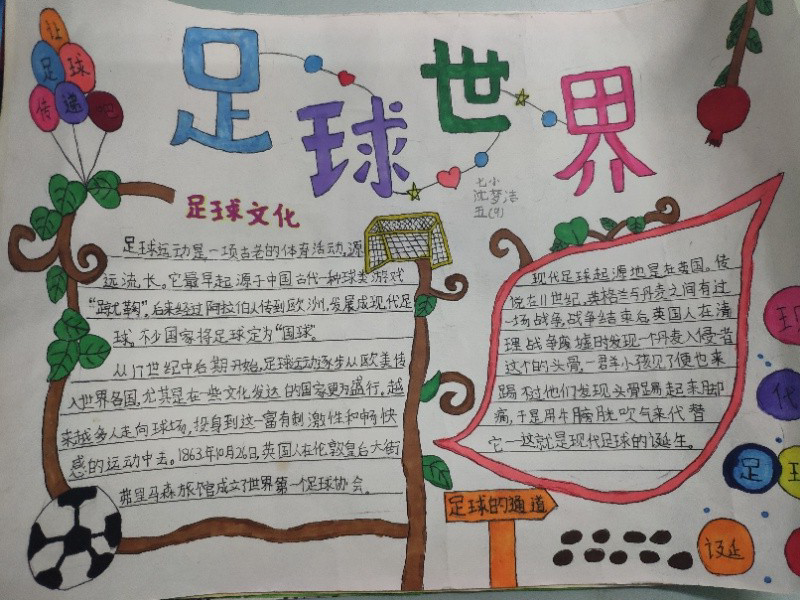 让
足球
传递吧
足球世界
七小
沈梦洁
五(9)
足球文化
足球运动是一项古老的体育活动,源
远流长。它最早起源于中国古代一种球类游戏
“蹴鞠”,后来经过阿拉伯人传到欧洲,发展成现代足
球,不少国家将足球定为“国球”。
从17世纪中后期开始,足球运动逐步从欧美传
入世界各国,尤其是在一些文化发达的国家更为盛行。越
来越多人走向球场,投身到这一富有刺激性和畅快
感的运动中去。1863年10月26日,英国人在伦敦皇后大街
弗里马森旅馆成立了世界第一个足球协会。
现代足球起源地是在英国。传
说在11世纪,英格兰与丹麦之间有过
一场战争,战争结束后英国人在清
理战争废墟时发现一个丹麦入侵者
这个的头骨,一群小孩见了便也来
踢不过他们发现头骨踢起来脚
痛,于是用牛膀胱吹气来代替
它一这就是现代足球的诞生。
现
代
足
诞
足球的通道